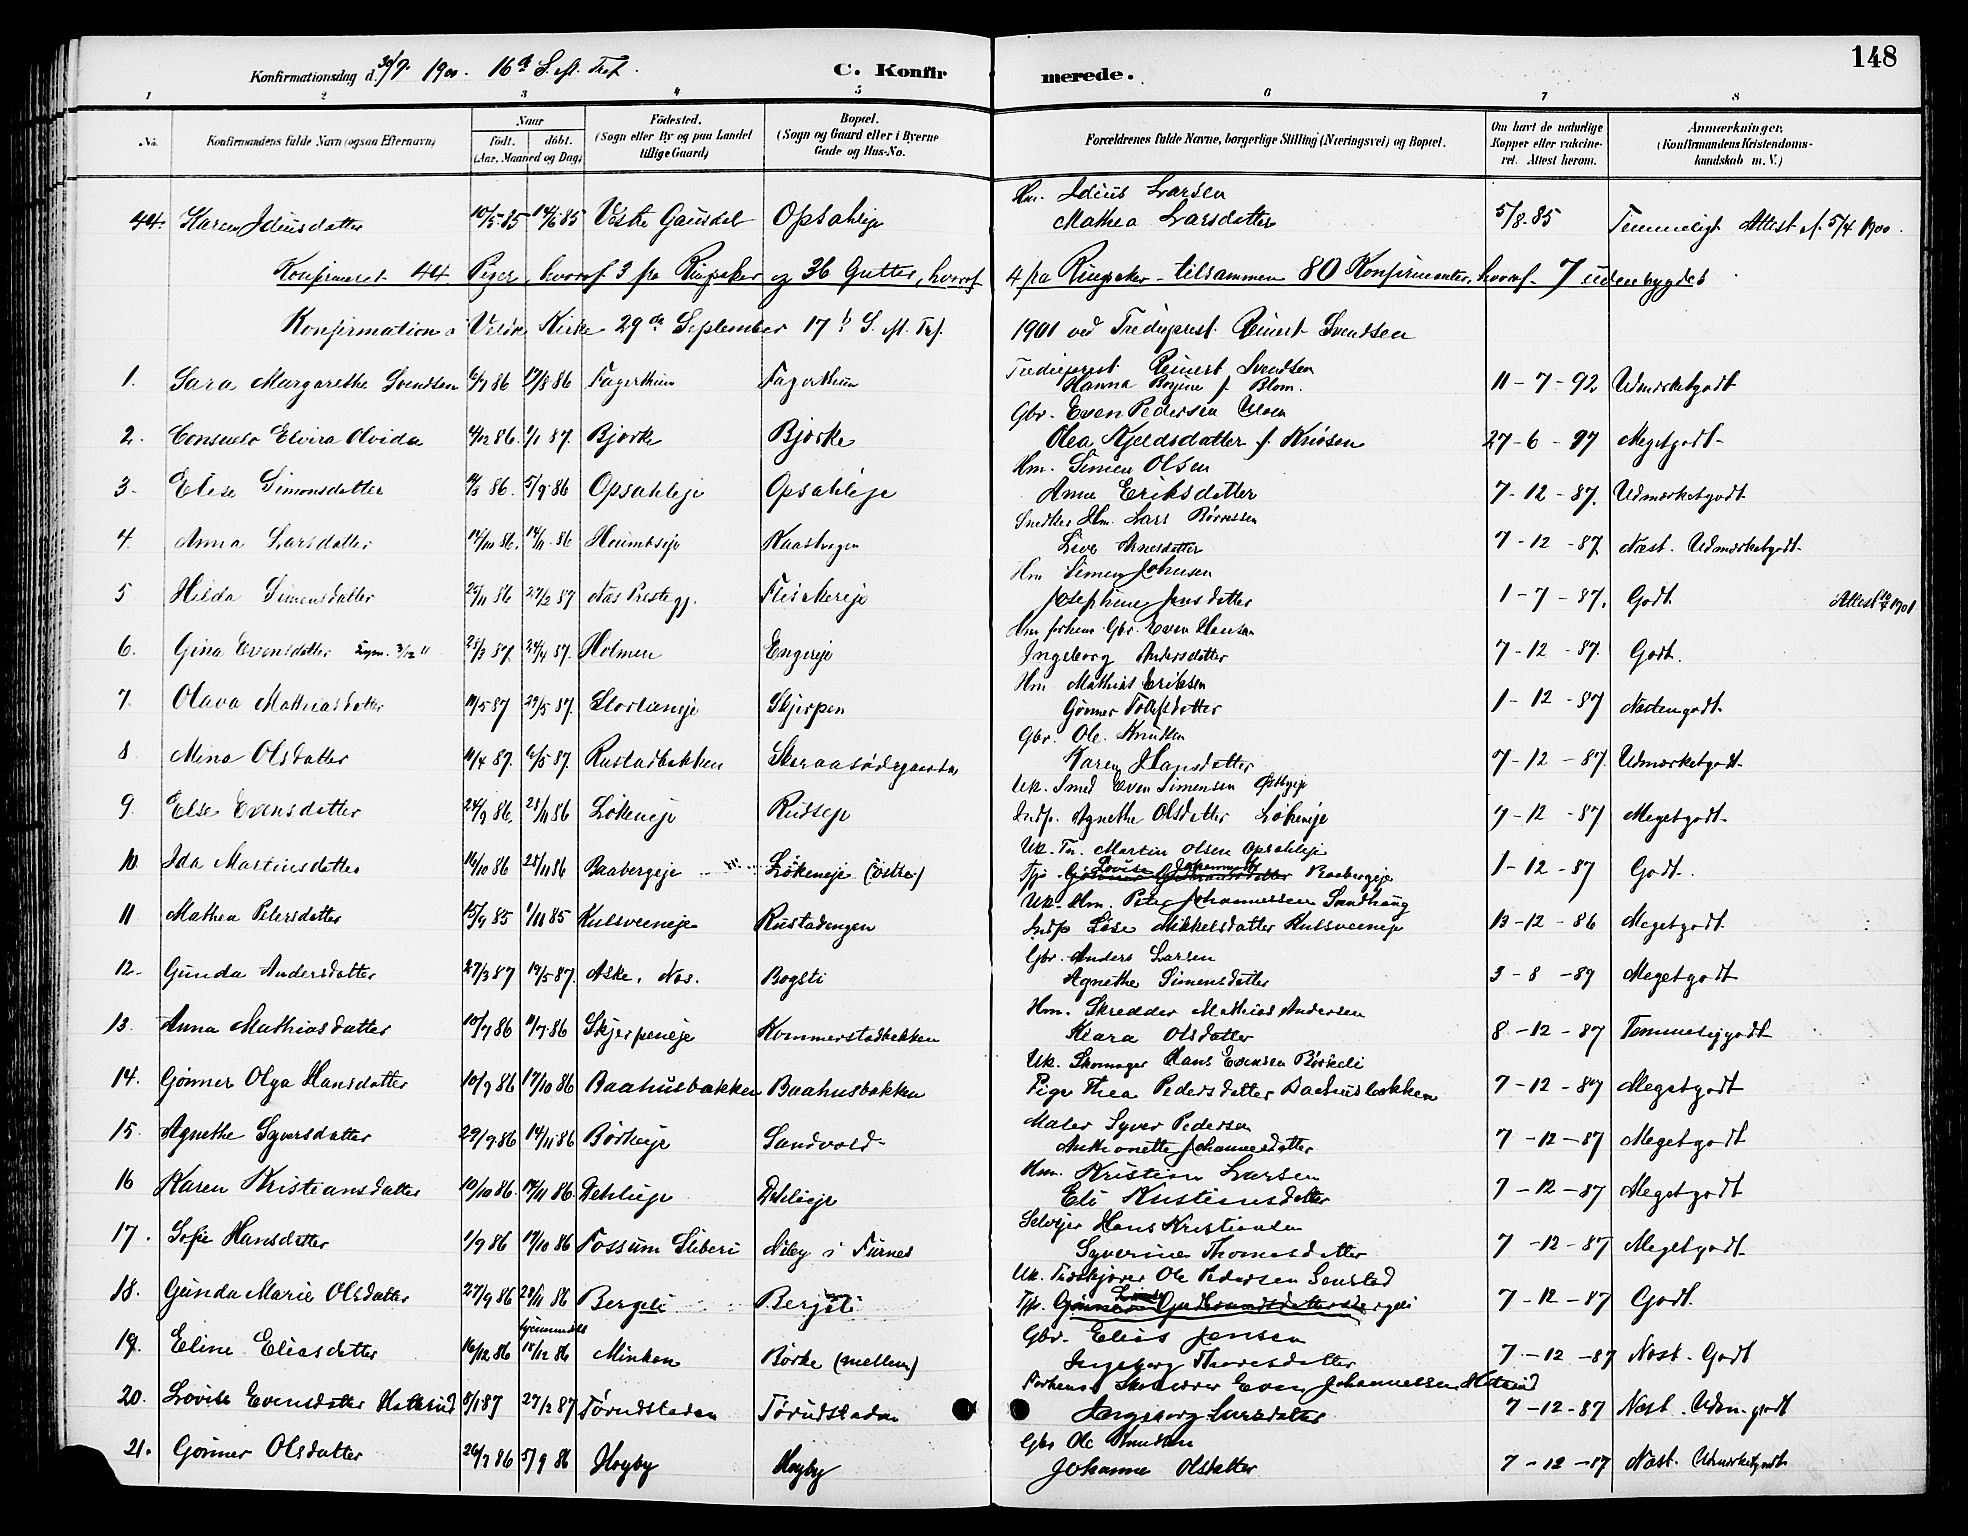 148
Konfirmationsdag d. 30/9 1900. 16de S. eft. Tref. C. Konfirmerede.
1 2 3 4 5 6 7 8
No. Konfirmandens fulde Navn (ogsaa Efternavn) Naar født. døbt. (Aar, Maaned og Dag) Fødested. (Sogn eller By og paa Landet tillige Gaard) Bopæl. (Sogn og Gaard eller i Byerne Gade og Hus-No. Forældrenes fulde Navne, borgerlige Stilling (Næringsvei) og Bopæl. Om havt de naturlige Kopper eller vakcineret. Attest herom. Anmærkninger. (Konfirmandens Kristendomskundskab m. V.)
44. Karen Idiusdatter 10/5 85 14/6 85 Vestre Gausdal Opsahleje Hm. Idius Larsen Mathea Larsdatter 5/8 85 Temmeligt Attest af 5/4 1900.
Konfirmeret 44 Piger, hvoraf 3 fra Ringsaker og 36 Gutter, hvoraf 4 fra Ringsaker - tilsammen 80 Konfirmanter, hvoraf 7 udenbygdes
Konfirmation i Veldre Kirke 29de September 17de S. eft. Tref. 1901 ved Tredieprest Reinert Svendsen
1. Sara Margarethe Svendsen 6/7 86 17/8 86 Fagerthun Fagerthun Tredieprest Reinert Svendsen Hanna f. Blom. 11-7-92 Udmærketgodt
2. Consuelo Elvira Olvida 4/12 86. 1/1 87. Bjørke Bjørke Gbr. Even Pedersen Olea Kjeldsdatter f. Kniosen 27-6-97 Megetgodt
3. Elise Simonsdatter 86. 5/9 86 Opsahleje Opsahleje Hm. Simen Olsen Anne Eriksdatter 7-12-87. Udmærketgodt
4. Anna Larsdatter 14/10 86. 14/11 86 Heimtseje Kaastvegen Snedker Hm. Lars Børresen Live Arnesdatter 7-12-87 Næst. Udmærketgodt.
5 Hilda Simensdatter 25/11 86 27/2 87 Næs Prestegj. Flisakereje Hm Simen Johnsen Josephine Jensdatter 1-7-87. Godt. Attest 1901
6. Gina Evensdatter 25/3 87. 24/4 87. Holmen Engereje Hm forhen Gbr. Even Hansen Ingeborg Andersdatter 7-12-87. Godt.
7. Olava Mathiasdatter 11/5 87 29/5 87. Storlieneje Skjerpen Hm. Mathias Eriksen Gønner Tolfsdatter 1-12-87 Næstengodt
8 Mina Olsdatter 11/4 87. 6/5 87. Rustadbakken Gbr. Ole Knudsen Karen Hansdatter 7-12-87 Udmærketgodt
9. Else Evensdatter 24/9 86. 28/11 86 Løkeneje Rudseje Uk. Smed Even Simensen Indp. Agnethe Olsdatter Løkeneje 7-12-87 Megetgodt
10 Ida Martinsdatter 16/10 86 28/11 86 Baabergeje Løkeneje (østre) Uk. Tn. Martin Olsen Opsahleje Tjp. Lovise Baabergeje 1-12-87 Godt.
11 Mathea Petersdatter 15/9 85 1/11 85 Kulsveeneje Rustadengen Uk. Hm. Peter Johannessen Sandhaug Indp Lise Mikkelsdatter Kulsveeneje 13-12-86 Megetgodt.
12. Gunda Andersdatter 27/3 87 19/5 87. Aske, Næs. Bogsti Gbr. Anders Larsen Agnethe Simensdatter 3-8-89 Megetgodt
13. Anna Mathiasdatter 10/7 86 11/7 86 Skjerpeneje Kommerstadbakken Hm. Skredder Mathias Andersen Klara Olsdatter 8-12-87 Temmeligodt
14. Gønner Olga Hansdatter 10/9 86 17/10 86 Baahusbakken Baahusbakken Uk. Skomager Hans Evensen Børkeli Pige Thea Pedersdatter Baahusbakken 7-12-87 Megetgodt
15. Agnethe Syversdatter 29/9 86 14/11 86 Børkeeje Sandvold Maler Syver Pedersen Anthonette Johannesdatter 7-12-87 Megetgodt
16 Karen Kristiansdatter 10/10 86 14/11 86 Dehlieje Dehlieje Hm. Kristian Larsen Eli Kristiansdatter 7-12-87 Megetgodt
17. Sofie Hansdatter 1/9 86 17/10 86 Fossum Sliberi Nby i Furnes Selvejer Hans Kristiansen Syverine Thomasdatter 7-12-87 Megetgodt
18. Gunda Marie Olsdatter 27/9 86 28/11 86 Bergeli Bergeli Uk. Ole Pedersen Senstad Tjp. Gønner Gudbrandsdatter Bergeli 7-12-87 Godt.
19. Eline Eliasdatter 16/12 86 hjemmedøbt 18/12 86 Minken Børke (mellem) Gbr. Elias Jensen Ingeborg Thoresdatter 7-12-87 Næst. Godt
20. Lovise Evensdatter Hatterud 8/1 87 27/2 87 Tørudstaden Tørudstaden Forhens Skolelærer Even Johannessen Hatterud Ingeborg Larsdatter 7-12-87 Næst. Udm. godt
21. Gønner Olsdatter 26/7 86 5/9 86 Høyby Høyby Gbr Ole Knudsen Johanne Olsdatter 7-12-87 Næst. Udmærketgodt